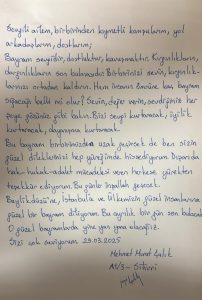 Sevgili ailem, birbirinden kıymetli komşularım, yol
arkadaşlarım, dostlarım;
Bayram sevgidir, dostluktur, kavuşmaktır. Kırgınlıkların,
dargınlıkların son bulmasıdır. Birbirinizi sevin, kırgınlık-
larınızı ortadan kaldırın. Hem insanın ömrüne kaç bayram
sığacağı belli mi olur! Sevin, değer verin, sevdiğiniz her
şeye gözünüz gibi bakın. Bizi sevgi kurtaracak, iyilik
kurtaracak, dayanışma kurtaracak.
Bu bayram birbirimizden uzak geçirsek de ben sizin
güzel dileklerinizi hep yüreğimde hissediyorum. Dışarıda
hak-hukuk-adalet mücadelesi veren herkese yürekten
teşekkür ediyorum. Bu günler inşallah geçecek.
Beylikdüzü'ne, İstanbul'a ve ülkemizin güzel insanlarına
güzel bir bayram diliyorum. Bu ayrılık bir gün son bulacak
O güzel bayramlarda yine yan yana olacağız.
Sizi çok seviyorum 29.03.2025
Mehmet Murat Çalık
Silivri